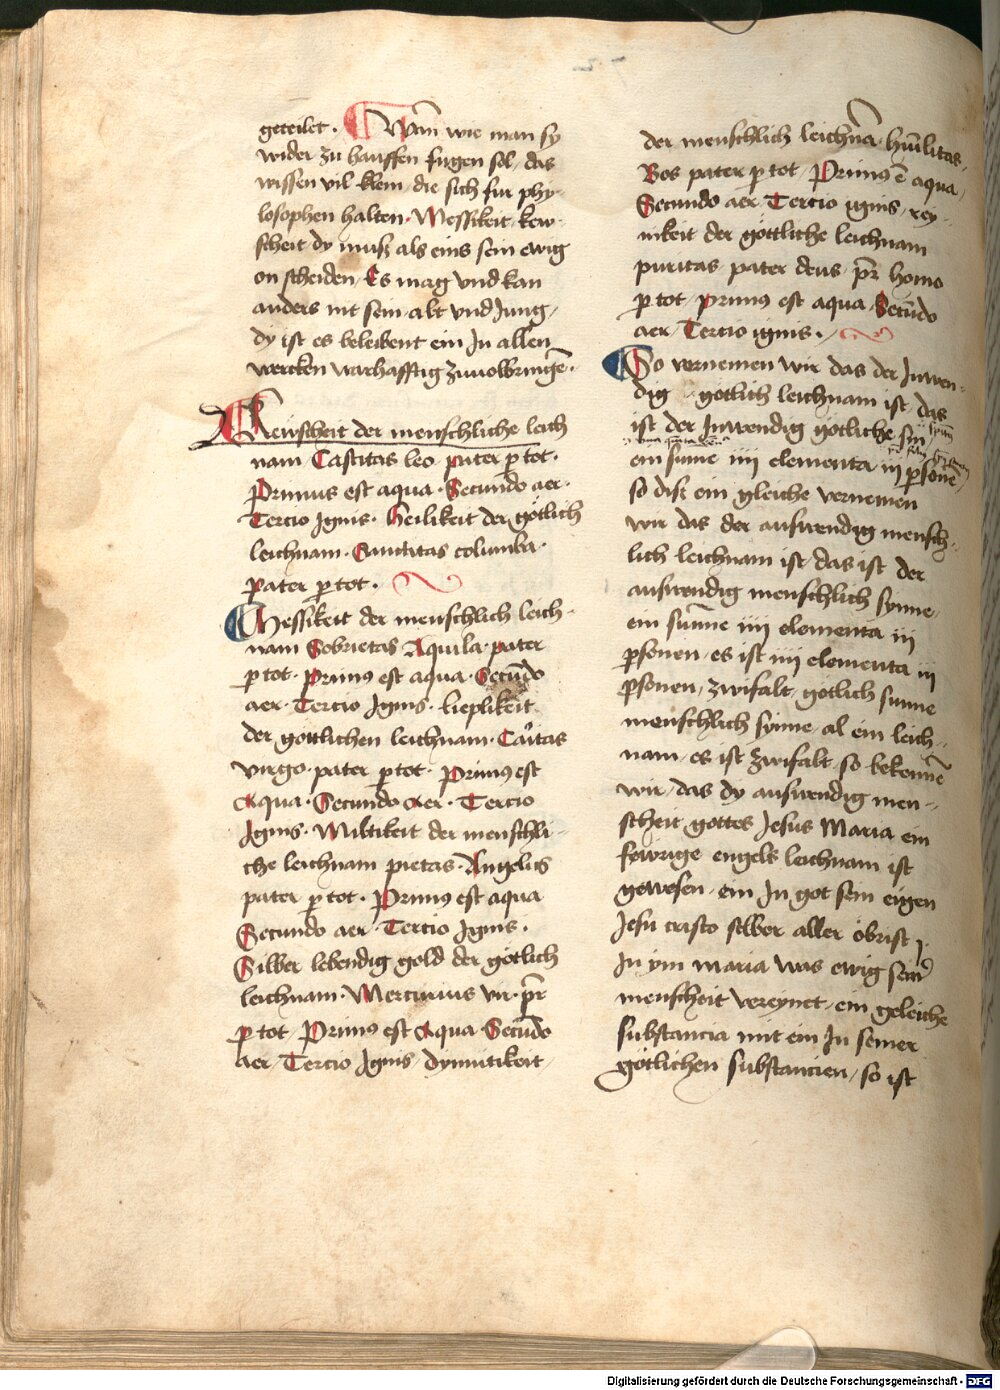 geteilet · Wan̄ wie man sy
wider zu hauffen fugen sol, das
wissen vil klein, die sich fur phy-
losophen halten · Messikeit kew-
scheit dy muß als eins sein ewig
on scheiden · Es mag vnd kan
anders nit sein, alt vnd Jung,
dy ist es beleibent ein In allen
wercken warhafftig zuuolbringē ·
Kewscheit der menschliche leich
nam · Castitas leo pater p tot ·
Primus est aqua · Secundo aer ·
Tercio Ignis · Heilikeit der gotlich
leichnam · Sanctitas columba ·
pater p tot ·
Messikeit der menschlich leich-
nam Sobrietas Aquila · pater
p tot · Primꝰ est aqua · Secūdo
aer · Tercio Ignis · lieplikeit
der gottlichen leichnam · Caritas
virgo · pater p tot · Primꝰ est
Aqua · Secundo Aer · Tercio
Ignis · Miltikeit der menschli-
che leichnam pietas · Angelus
pater p tot · Primꝰ est aqua
Secundo aer · Tercio Ignis ·
Silber lebendig gold der gotlich
leichnam · Mercurius vir · pr̄
p tot · Primꝰ est Aqua · Secūdo
aer · Tercio Ignis · dymutikeit ·
der menschlich leichnā · hūilitas ·
Bos pater p tot · Primꝰ ē aqua ·
Secundo aer · Tercio ignis · rey-
nikeit der gottliche leichnam
puritas pater deus · pr̄ homo
p tot · primꝰ est aqua · Secūdo
aer · Tercio ignis ·
So vernemen wir das der Inwen-
dig gotlich leichnam ist, das
ist der Inwendig gotliche sin
ein sunne iiij elementa iij psonē
so diß ein gleiche vernemen
wir das der auswendig mensch-
lich leichnam ist, das ist der
auswendig menschlich synne
ein sunne iiij elementa iij
psonen, es ist iiij elementa iij
psonen, zwifalt gotlich sunne
menschlich synne, al ein leich-
nam, es ist zwifalt, so bekennē
wir, das dy auswendig men-
scheit gottes Jesus Maria ein
fewrige engels leichnam ist
gewesen, ein In got sein eigen
Jesu cristo selber aller obrist
In ym maria was ewig sein
menscheit vereynet, ein geleiche
substancia mit ein In seiner
gotlichen substancien, so ist
Digitalisierung gefördert durch die Deutsche Forschungsgemeinschaft - DFG